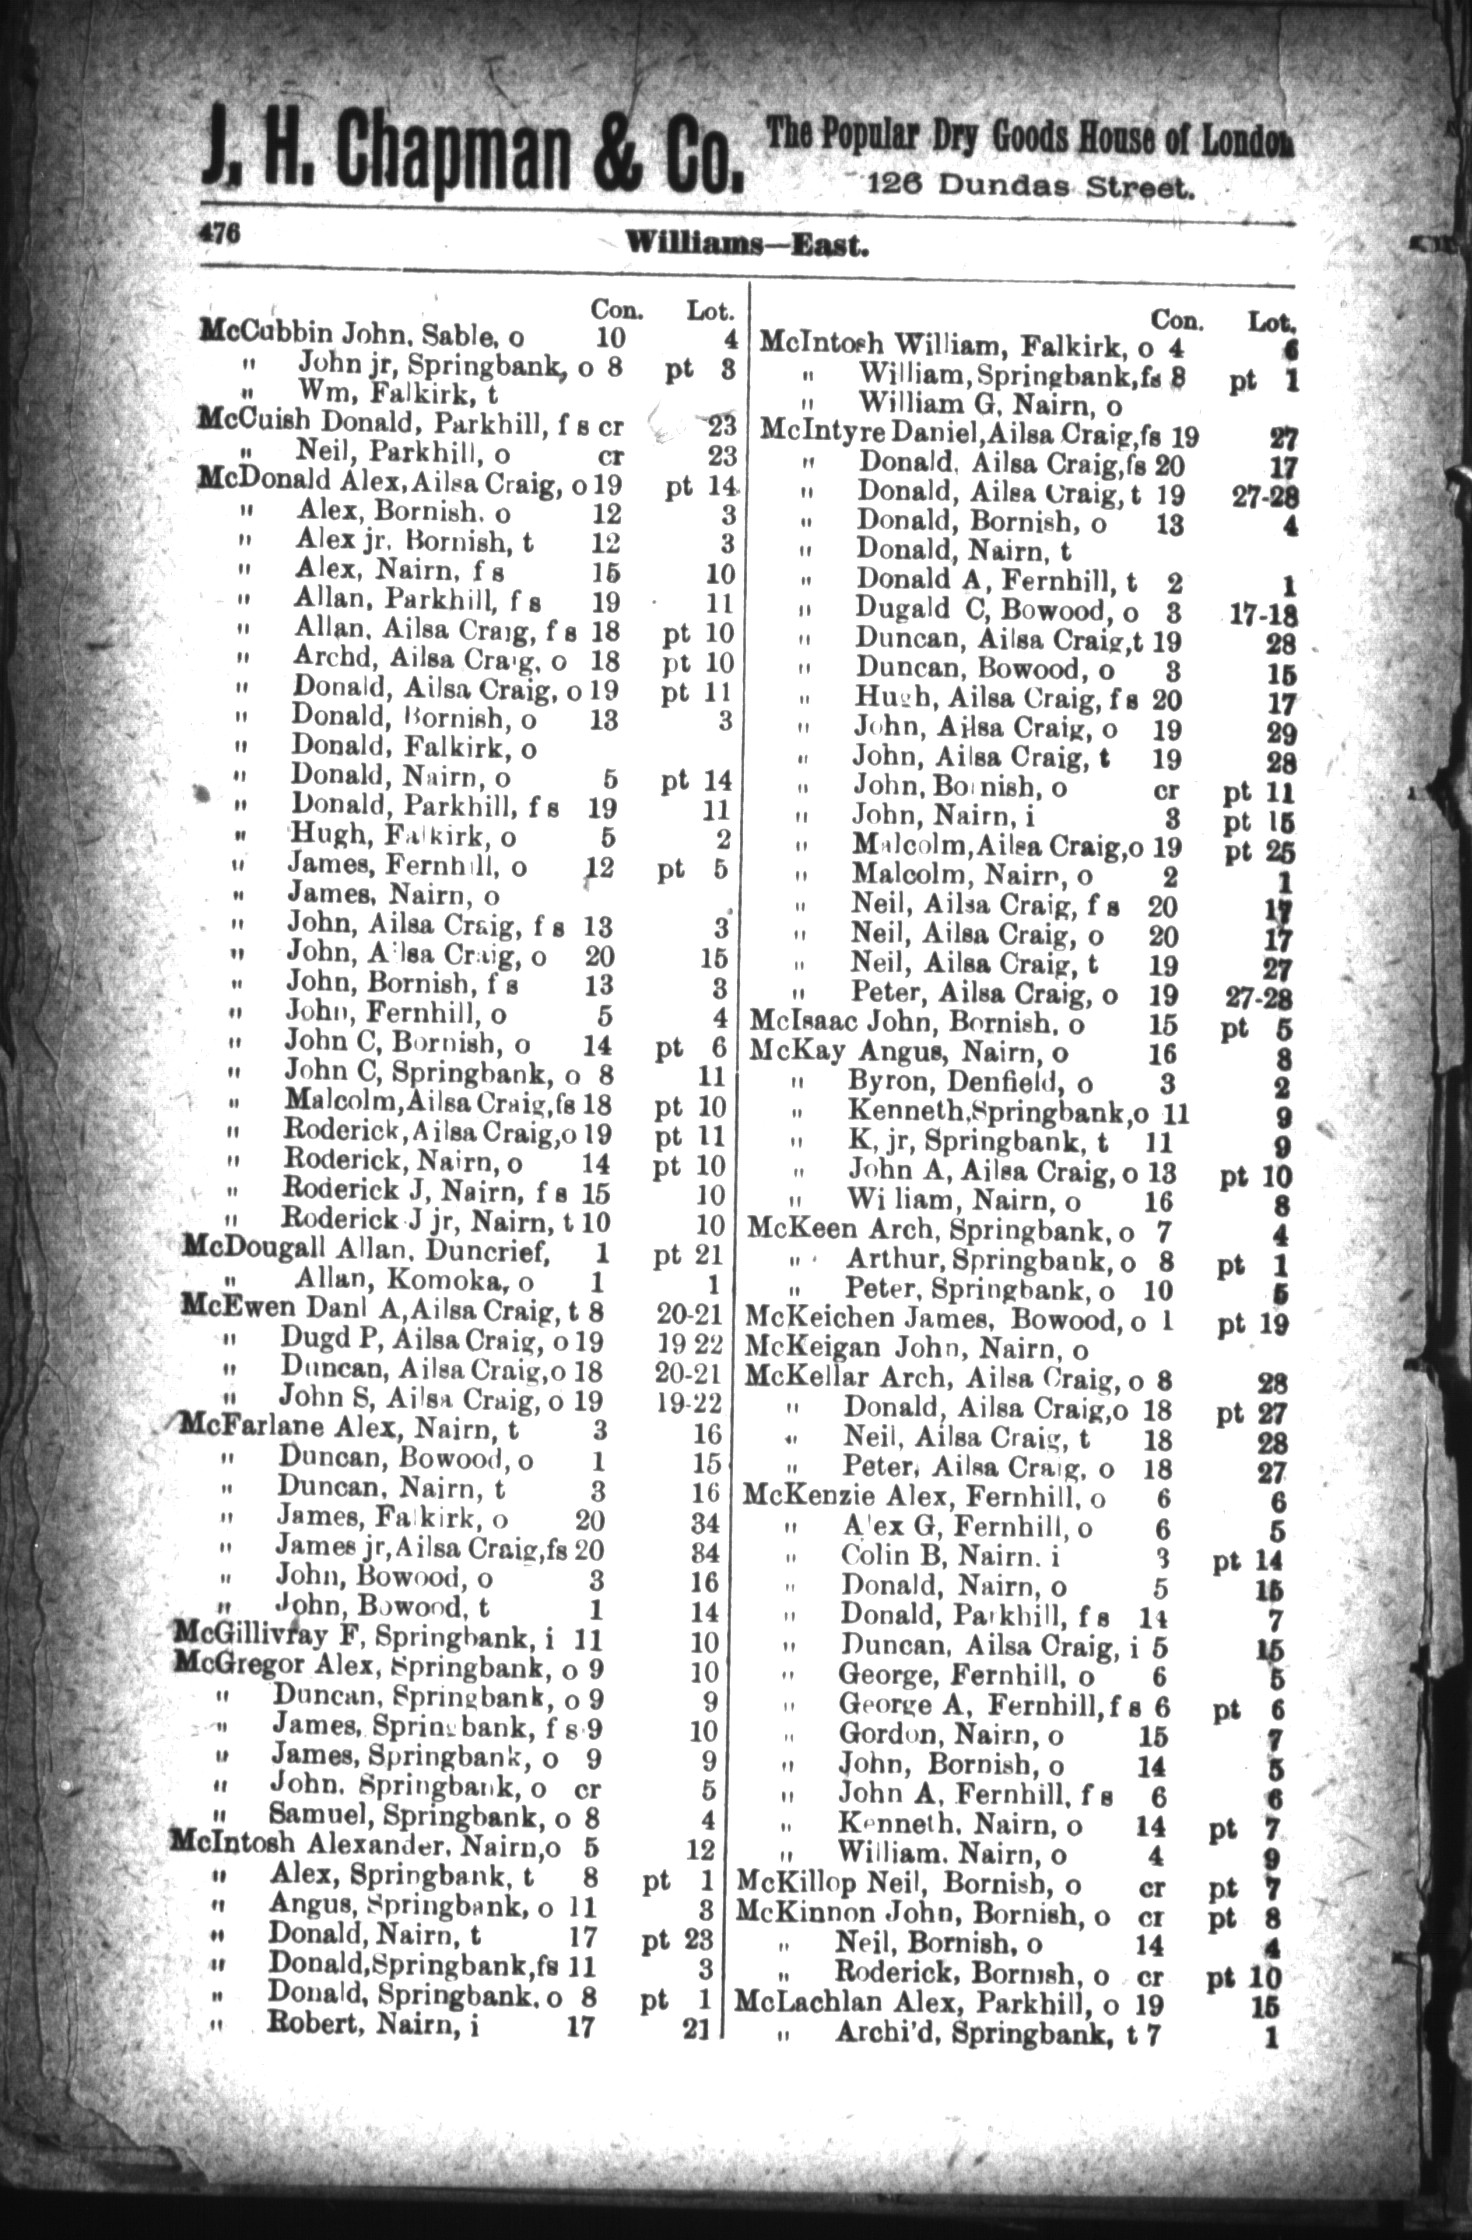 J. H. Chapman & Co. The Popular Dry Goods House of London
126 Dundas Street.
476
Williams—East.
Con. Lot.
McCubbin John, Sable, o 10 4
" John jr, Springbank, o 8 pt 3
" Wm, Falkirk, t
McCuish Donald, Parkhill, f s cr 23
" Neil, Parkhill, o cr 23
McDonald Alex, Ailsa Craig, o 19 pt 14
" Alex, Bornish, o 12 3
" Alex jr, Bornish, t 12 3
" Alex, Nairn, f s 15 10
" Allan, Parkhill, f s 19 11
" Allan, Ailsa Craig, f s 18 pt 10
" Archd, Ailsa Craig, o 18 pt 10
" Donald, Ailsa Craig, o 19 pt 11
" Donald, Bornish, o 13 3
" Donald, Falkirk, o
" Donald, Nairn, o 5 pt 14
" Donald, Parkhill, f s 19 11
" Hugh, Falkirk, o 5 2
" James, Fernhill, o 12 pt 5
" James, Nairn, o
" John, Ailsa Craig, f s 13 3
" John, Ailsa Craig, o 20 15
" John, Bornish, f s 13 3
" John, Fernhill, o 5 4
" John C, Bornish, o 14 pt 6
" John C, Springbank, o 8 11
" Malcolm, Ailsa Craig, fs 18 pt 10
" Roderick, Ailsa Craig, o 19 pt 11
" Roderick, Nairn, o 14 pt 10
" Roderick J, Nairn, f s 15 10
" Roderick J jr, Nairn, t 10 10
McDougall Allan, Duncrief, 1 pt 21
" Allan, Komoka, o 1 1
McEwen Danl A, Ailsa Craig, t 8 20-21
" Dugd P, Ailsa Craig, o 19 19 22
" Duncan, Ailsa Craig, o 18 20-21
" John S, Ailsa Craig, o 19 19-22
McFarlane Alex, Nairn, t 3 16
" Duncan, Bowood, o 1 15
" Duncan, Nairn, t 3 16
" James, Falkirk, o 20 34
" James jr, Ailsa Craig, fs 20 34
" John, Bowood, o 3 16
" John, Bowood, t 1 14
McGillivray F, Springbank, i 11 10
McGregor Alex, Springbank, o 9 10
" Duncan, Springbank, o 9 9
" James, Springbank, f s 9 10
" James, Springbank, o 9 9
" John, Springbank, o cr 5
" Samuel, Springbank, o 8 4
McIntosh Alexander, Nairn, o 5 12
" Alex, Springbank, t 8 pt 1
" Angus, Springbank, o 11 3
" Donald, Nairn, t 17 pt 23
" Donald, Springbank, fs 11 3
" Donald, Springbank, o 8 pt 1
" Robert, Nairn, i 17 21
Con. Lot.
McIntosh William, Falkirk, o 4 6
" William, Springbank, fs 8 pt 1
" William G, Nairn, o
McIntyre Daniel, Ailsa Craig, fs 19 27
" Donald, Ailsa Craig, fs 20 17
" Donald, Ailsa Craig, t 19 27-28
" Donald, Bornish, o 13 4
" Donald, Nairn, t
" Donald A, Fernhill, t 2 1
" Dugald C, Bowood, o 3 17-18
" Duncan, Ailsa Craig, t 19 28
" Duncan, Bowood, o 3 15
" Hugh, Ailsa Craig, f s 20 17
" John, Ailsa Craig, o 19 29
" John, Ailsa Craig, t 19 28
" John, Bornish, o cr pt 11
" John, Nairn, i 3 pt 15
" Malcolm, Ailsa Craig, o 19 pt 25
" Malcolm, Nairn, o 2 1
" Neil, Ailsa Craig, f s 20 17
" Neil, Ailsa Craig, o 20 17
" Neil, Ailsa Craig, t 19 27
" Peter, Ailsa Craig, o 19 27-28
McIsaac John, Bornish, o 15 pt 5
McKay Angus, Nairn, o 16 8
" Byron, Denfield, o 3 2
" Kenneth, Springbank, o 11 9
" K, jr, Springbank, t 11 9
" John A, Ailsa Craig, o 13 pt 10
" William, Nairn, o 16 8
McKeen Arch, Springbank, o 7 4
" Arthur, Springbank, o 8 pt 1
" Peter, Springbank, o 10 5
McKeichen James, Bowood, o 1 pt 19
McKeigan John, Nairn, o
McKellar Arch, Ailsa Craig, o 8 28
" Donald, Ailsa Craig, o 18 pt 27
" Neil, Ailsa Craig, t 18 28
" Peter, Ailsa Craig, o 18 27
McKenzie Alex, Fernhill, o 6 6
" Alex G, Fernhill, o 6 5
" Colin B, Nairn. i 3 pt 14
" Donald, Nairn, o 5 15
" Donald, Parkhill, f s 14 7
" Duncan, Ailsa Craig, i 5 15
" George, Fernhill, o 6 5
" George A, Fernhill, f s 6 pt 6
" Gordon, Nairn, o 15 7
" John, Bornish, o 14 5
" John A, Fernhill, f s 6 6
" Kenneth, Nairn, o 14 pt 7
" William, Nairn, o 4 9
McKillop Neil, Bornish, o cr pt 7
McKinnon John, Bornish, o cr pt 8
" Neil, Bornish, o 14 4
" Roderick, Bornish, o cr pt 10
McLachlan Alex, Parkhill, o 19 15
" Archi'd, Springbank, t 7 1